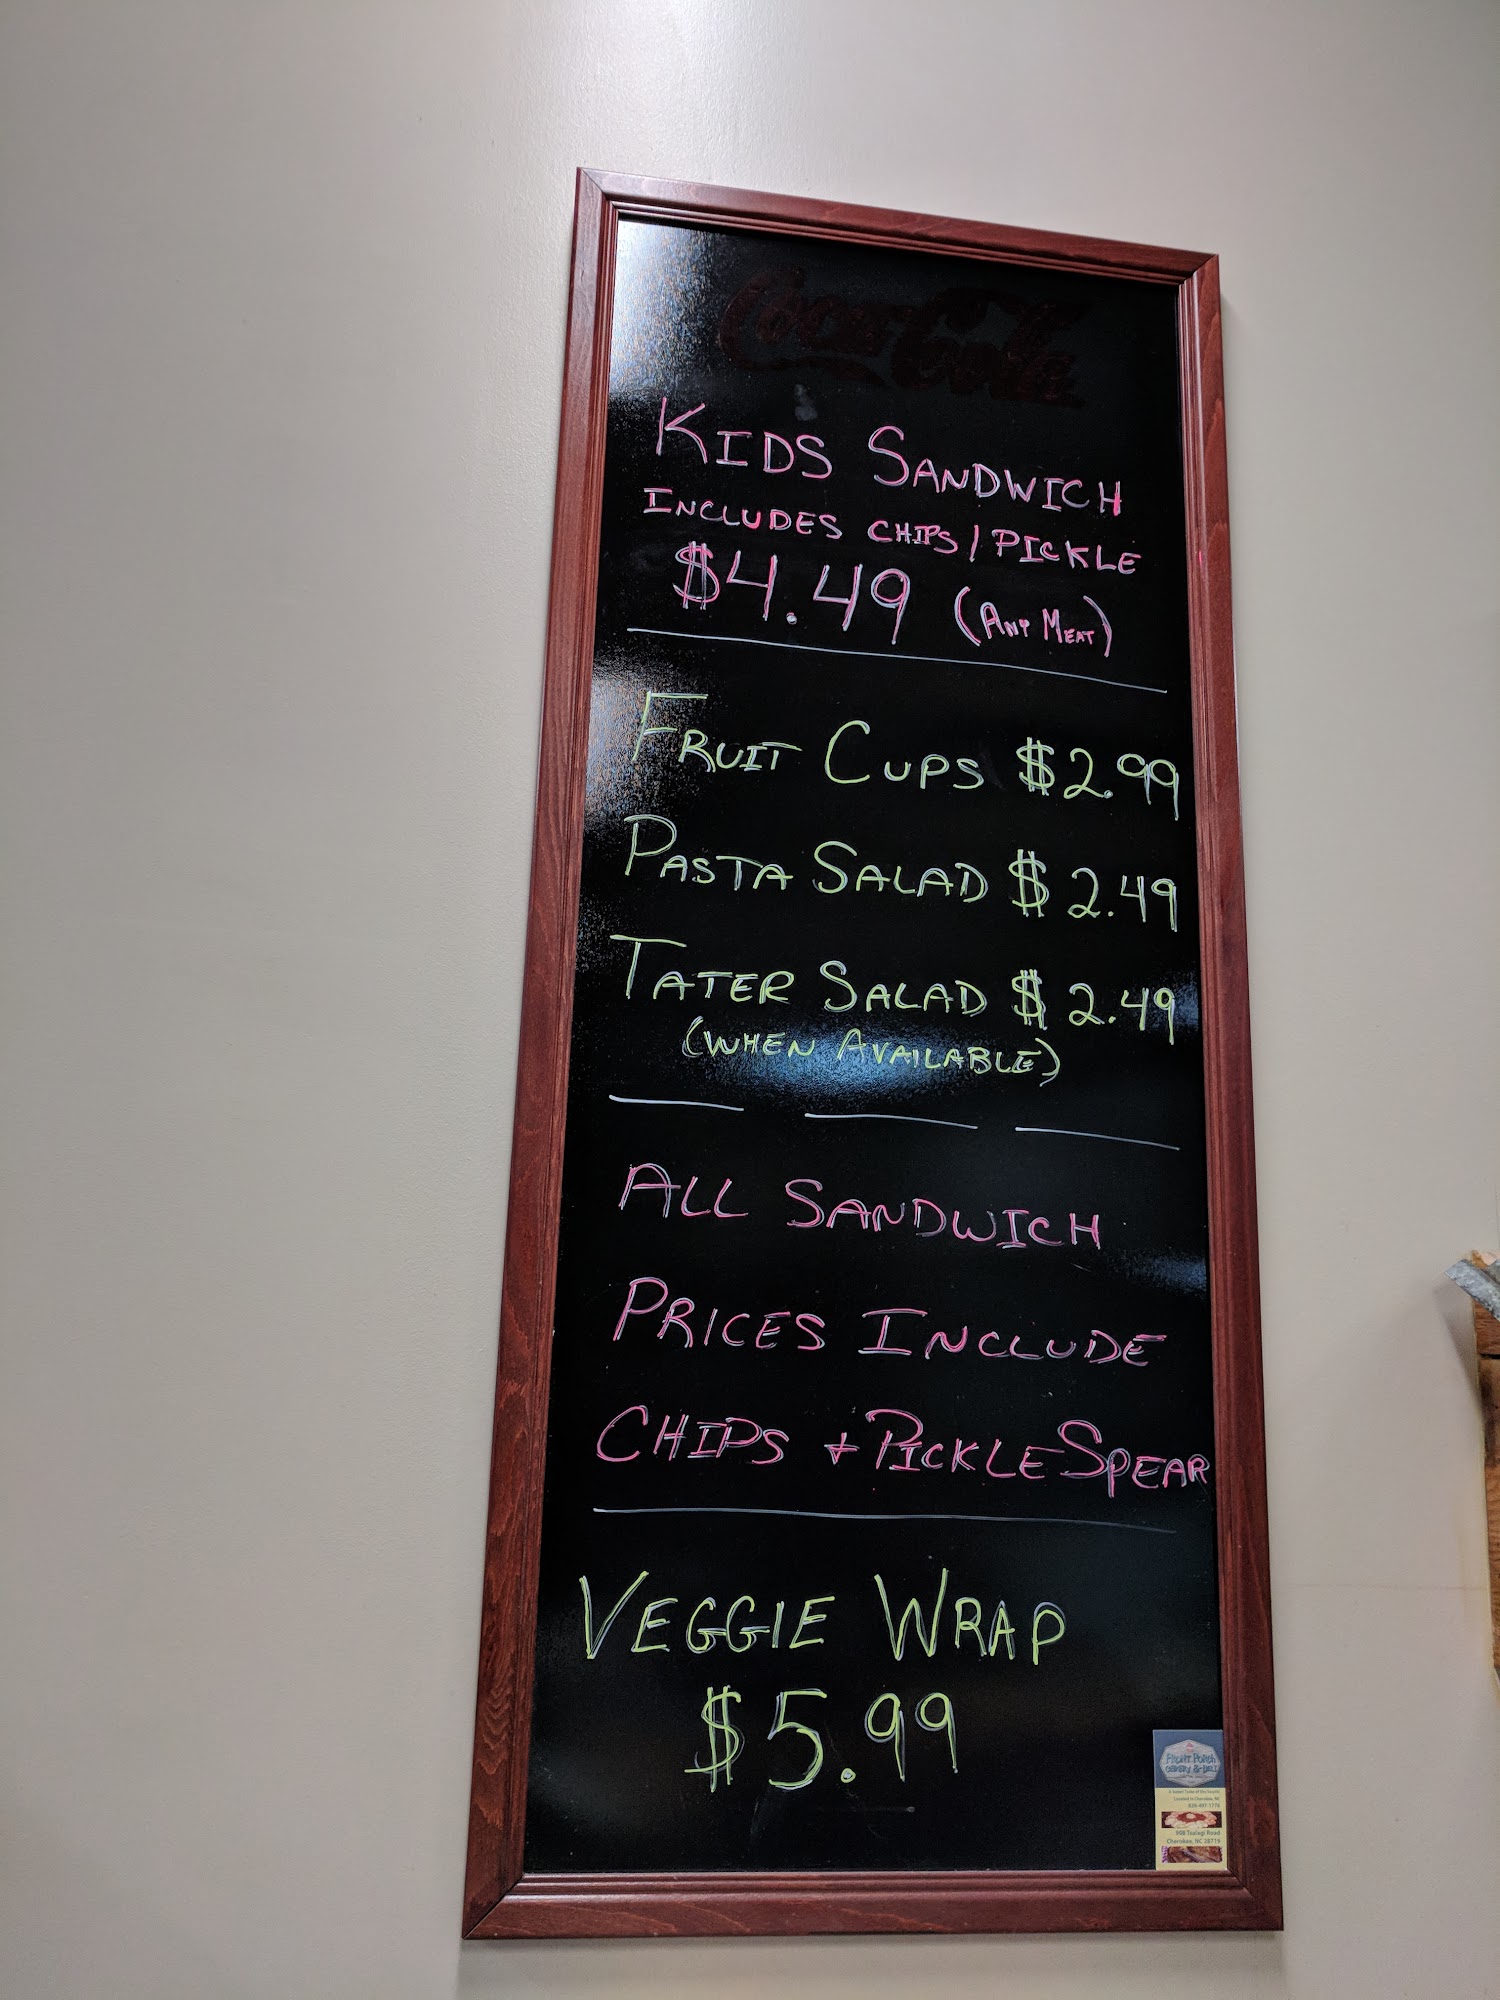 Coca-Cola
KIDS SANDWICH
INCLUDES CHIPS/PICKLE
$4.49 (ANY MEAT)
FRUIT CUPS $2.99
PASTA SALAD $2.49
TATER SALAD $2.49
(WHEN AVAILABLE)
ALL SANDWICH
PRICES INCLUDE
CHIPS + PICKLE SPEAR
VEGGIE WRAP
$5.99
FRONT PORCH
& DELI
Located in Cherokee, NC
Road
Cherokee, NC 28719